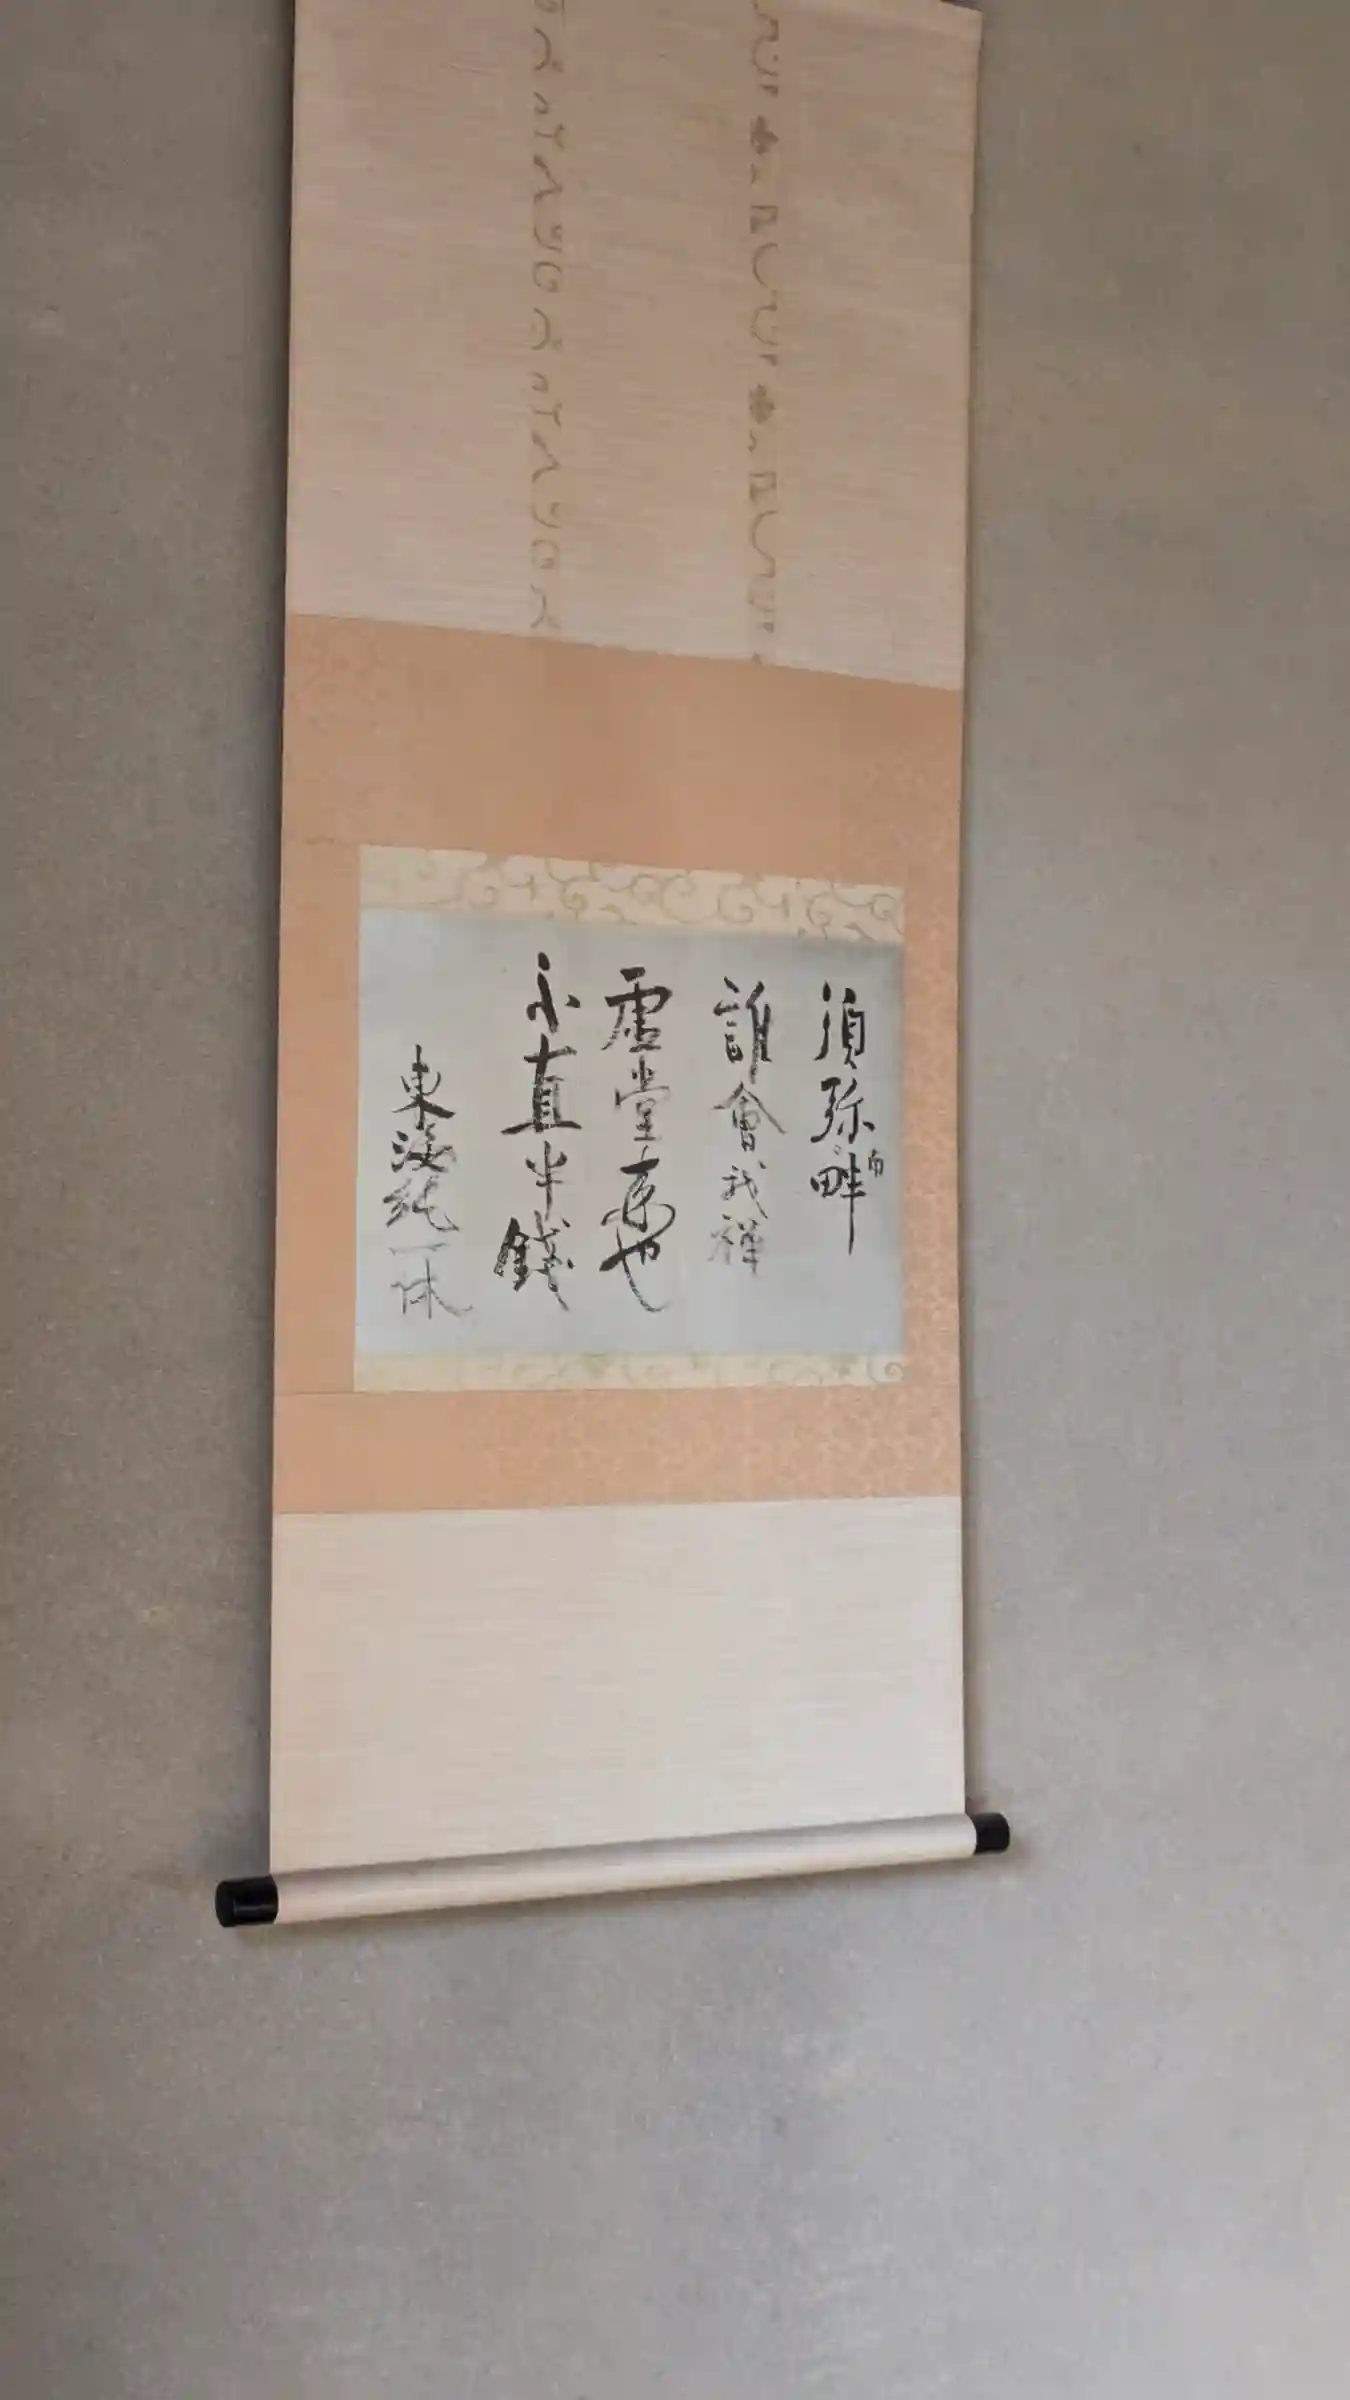 須弥南畔
誰會我禅
虚堂来也
不直半錢
東海純一休